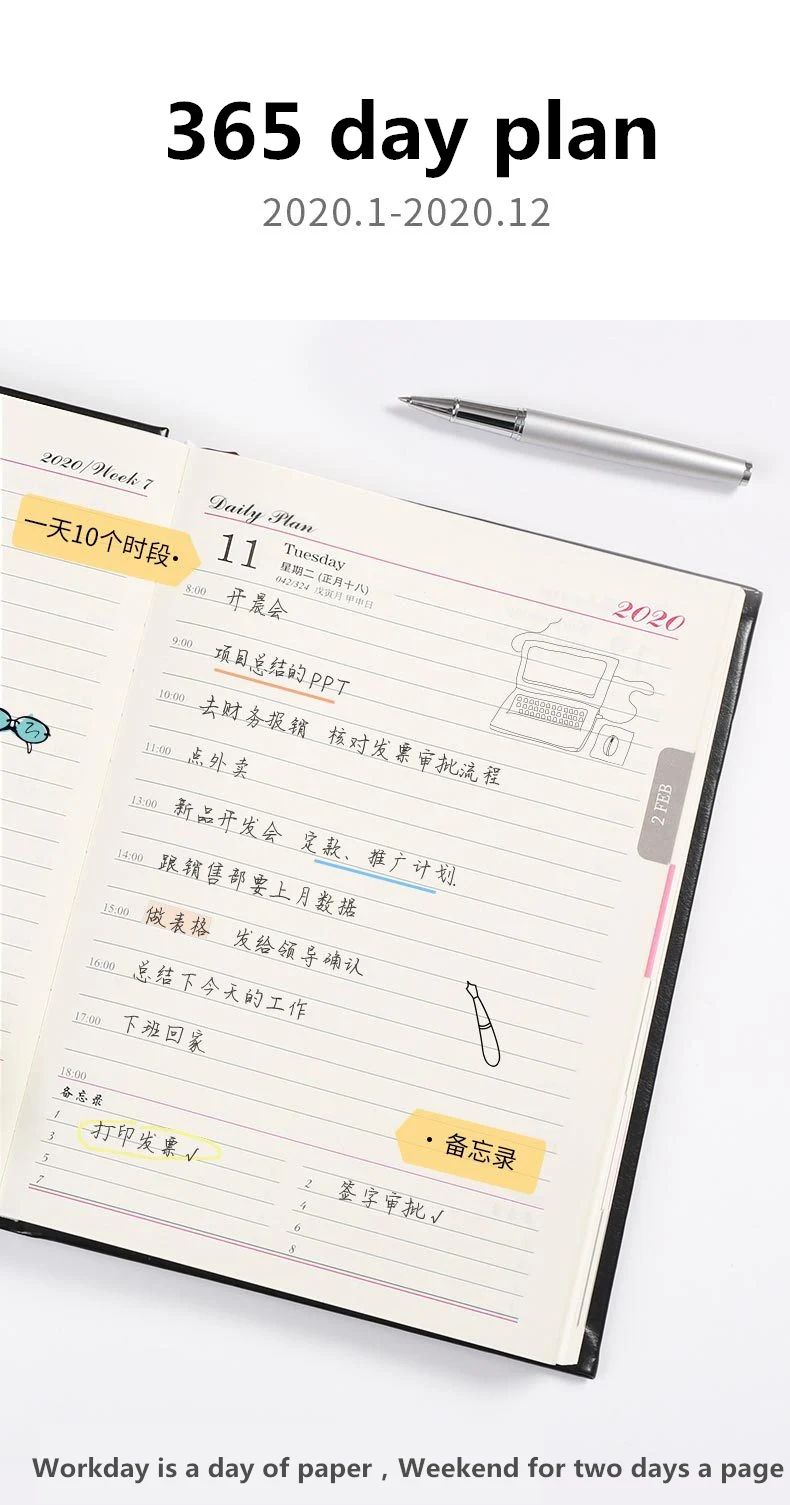 365 day plan
2020.1-2020.12
2020/Week 7
一天10个时段
Daily Plan
11
Tuesday
星期二 (正月十八)
042/324 戊寅月 甲申日
2020
8:00 开晨会
9:00 项目总结的PPT
10:00 去财务报销 核对发票审批流程
11:00 点外卖
13:00 新品开发会 定款、推广计划.
14:00 跟销售部要上月数据
15:00 做表格 发给领导确认
16:00 总结下今天的工作
17:00 下班回家
18:00
2 FEB
备忘录
备忘录
1 打印发票√
2 签字审批√
3
4
5
6
7
8
Workday is a day of paper , Weekend for two days a page